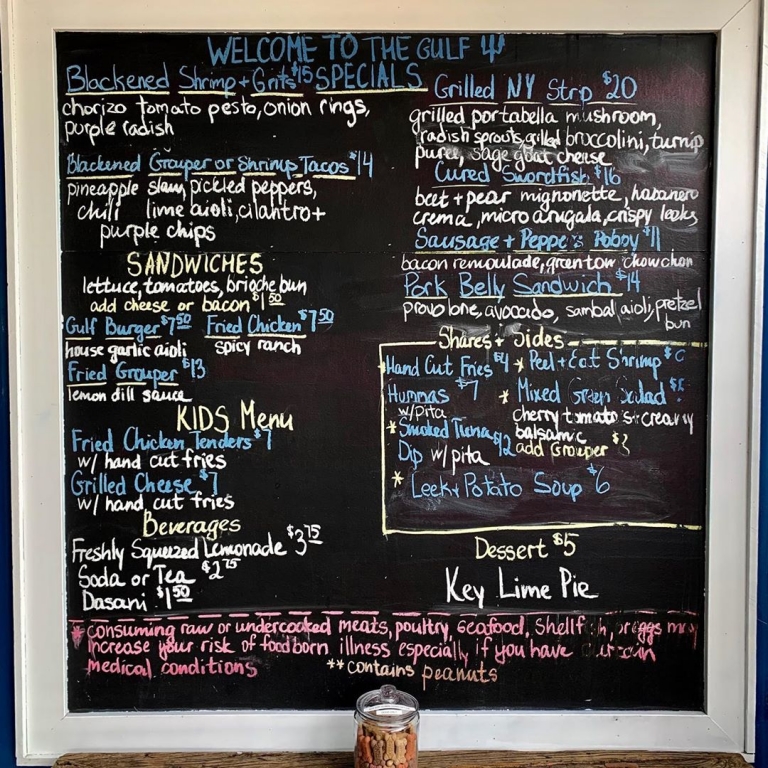 WELCOME TO THE GULF
SPECIALS
Blackened Shrimp + Grits $15
chorizo tomato pesto, onion rings,
purple radish
Blackened Grouper or Shrimp Tacos $14
pineapple slaw, pickled peppers,
chili lime aioli, cilantro +
purple chips
SANDWICHES
lettuce, tomatoes, brioche bun
add cheese or bacon $1.50
Gulf Burger $7.50 Fried Chicken $7.50
house garlic aioli spicy ranch
Fried Grouper $13
lemon dill sauce
KIDS Menu
Fried Chicken Tenders $7
w/ hand cut fries
Grilled Cheese $7
w/ hand cut fries
Beverages
Freshly Squeezed Lemonade $3.75
Soda or Tea $2.75
Dasani $1.50
Grilled NY Strip $20
grilled portabella mushroom,
radish sprouts, grilled broccolini, turnip
puree, sage goat cheese
Cured Swordfish $16
beet + pear mignonette, habanero
crema, micro arugala, crispy leeks
Sausage + Peppers Poboy $11
bacon remoulade, green tom chow chow
Pork Belly Sandwich $14
provolone, avocado, sambal aioli, pretzel
bun
Shares + Sides
*Hand Cut Fries $4
Hummas $7
w/ Pita
*Smoked Tuna $12
Dip w/ pita
* Peel + Eat Shrimp
* Mixed Green Salad
cherry tomato's creamy
balsamic
add Grouper $3
* Leek + Potato Soup $6
Dessert $5
Key Lime Pie
* consuming raw or undercooked meats, poultry, seafood, shellfish, or eggs may
increase your risk of foodborn illness especially if you have certain
medical conditions
** contains peanuts